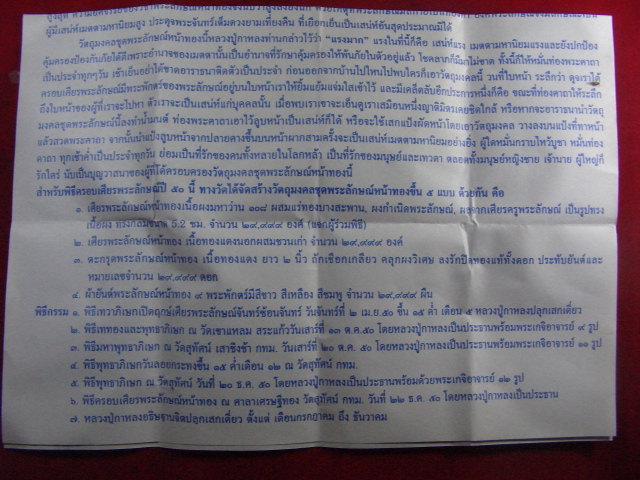 ผู้มีเสน่ห์เมตตามหานิยมสูง ประดุจพระจันทร์เต็มดวงยามเที่ยงคืน ที่เยือกเย็นเป็นเสน่ห์อันสุดประมาณมิได้
วัตถุมงคลชุดพระลักษณ์หน้าทองนี้หลวงปู่กาหลงท่านกล่าวไว้ว่า "แรงมาก" แรงในที่นี้ก็คือ เสน่ห์แรง เมตตามหานิยมแรงและยังปกป้อง
คุ้มครองป้องกันภัยได้ดีเพราะอำนาจของเมตตานั้นเป็นอำนาจที่รักษาคุ้มครองให้พ้นภัยในตัวอยู่แล้ว โชคลาภก็มีมาไม่ขาด ทั้งนี้ก็ให้หมั่นท่องพระคาถา
เป็นประจำทุกๆวัน เช้าเย็นอย่าได้ขาดอาราธนาติดตัวเป็นประจำ ก่อนออกจากบ้านไปไหนไปพบใครก็เอาวัตถุมงคลนี้ วนที่ใบหน้า ระลึกว่า ดุจเราได้
ครอบเศียรพระลักษณ์มีพระพักตร์ของพระลักษณ์อยู่บนใบหน้าเราให้ยิ้มแย้มแจ่มใสเข้าไว้ และมีเคล็ดลับอีกประการหนึ่งก็คือ ขณะที่ท่องคาถาให้ระลึก
ถึงใบหน้าของผู้ที่เราจะไปหา ตัวเราจะเป็นเสน่ห์แก่บุคคลนั้น เมื่อพบเราเขาจะเอ็นดูเราเสมือนหนึ่งญาติมิตรเคยชิดใกล้ หรือหากจะอาราธนานำวัตถุ
มงคลชุดพระลักษณ์นี้ลงทำน้ำมนต์ ท่องพระคาถาเอาไว้ลูบหน้าเป็นเสน่ห์ก็ได้ หรือจะใช้เสกแป้งผัดหน้าโดยเอาวัตถุมงคล วางลงบนแป้งที่ทาหน้า
แล้วสวดพระคาถา จากนั้นนำแป้งลูบหน้าจากปลายคางขึ้นบนหน้าผากสามครั้งจะเป็นเสน่ห์เมตตามหานิยมอย่างยิ่ง ผู้ใดหมั่นกราบไหว้บูชา หมั่นท่อง
คาถา ทุกเช้าค่ำเป็นประจำทุกวัน ย่อมเป็นที่รักของคนทั้งหลายในโลกหล้า เป็นที่รักของมนุษย์และเทวดา ตลอดทั้งมนุษย์หญิงชาย เจ้านาย ผู้ใหญ่ก็
รักใคร่ นับเป็นบุญวาสนาของผู้ที่ได้ครอบครองวัตถุมงคลชุดพระลักษณ์หน้าทองนี้
สำหรับพิธีครอบเศียรพระลักษณ์ปี ๕๐ นี้ ทางวัดได้จัดสร้างวัตถุมงคลชุดพระลักษณ์หน้าทองขึ้น ๕ แบบ ด้วยกัน คือ
๑. เศียรพระลักษณ์หน้าทองเนื้อผงมหาว่าน ๑๐๘ ผสมแร่ทองบางสะพาน, ผงกำเนิดพระลักษณ์, ผงจากเศียรครูพระลักษณ์ เป็นรูปทรง
เนื้อผง ทรงกลมขนาด 5.2 ซม. จำนวน ๒๙,๙๙๙ องค์ (แจกผู้ร่วมพิธี)
๒. เศียรพระลักษณ์หน้าทอง เนื้อทองแดงนอกผสมชนวนเก่า จำนวน ๒๙,๙๙๙ องค์
๓. ตะกรุดพระลักษณ์หน้าทอง เนื้อทองแดง ยาว ๒ นิ้ว ถักเชือกเกลียว คลุกผงวิเศษ ลงรักปิดทองแท้ทั้งดอก ประทับยันต์และ
หมายเลขจำนวน ๒๙,๙๙๙ ดอก
๔. ผ้ายันต์พระลักษณ์หน้าทอง ๙ พระพักตร์มีสีขาว สีเหลือง สีชมพู จำนวน ๒๙,๙๙๙ ผืน
พิธีกรรม ๑. พิธีเทวาภิเษกเปิดฤกษ์เศียรพระลักษณ์จันทร์ซ้อนจันทร์ วันจันทร์ที่ ๒ เม.ย.๕๐ ขึ้น ๑๕ ค่ำ เดือน ๕ หลวงปู่กาหลงปลุกเสกเดี่ยว
๒. พิธีเททองและพุทธาภิเษก ณ วัดเขาแหลม สระแก้ววันเสาร์ที่ ๑๓ ต.ค.๕๐ โดยหลวงปู่กาหลงเป็นประธานพร้อมพระเกจิอาจารย์ ๙ รูป
๓. พิธีมหาพุทธาภิเษก ณ วัดสุทัศน์ เสาชิงช้า กทม. วันเสาร์ที่ ๒๐ ต.ค. ๕๐ โดยหลวงปู่กาหลงเป็นประธานพร้อมพระเกจิอาจารย์ ๑๐ รูป
๔. พิธีพุทธาภิเษกวันลอยกระทงขึ้น ๑๕ ค่ำเดือน ๑๒ ณ วัดสุทัศน์ กทม.
๕. พิธีพุทธาภิเษก ณ วัดสุทัศน์ วันที่ ๒๐ ธ.ค. ๕๐ โดยหลวงปู่กาหลงเป็นประธานพร้อมด้วยพระเกจิอาจารย์ ๑๒ รูป
๖. พิธีครอบเศียรพระลักษณ์หน้าทอง ณ ศาลาเศรษฐีทอง วัดสุทัศน์ กทม. วันที่ ๒๒ ธ.ค. ๕๐ โดยหลวงปู่กาหลงเป็นประธาน
๗. หลวงปู่กาหลงอธิษฐานจิตปลุกเสกเดี่ยว ตั้งแต่ เดือนกรกฎาคม ถึง ธันวาคม